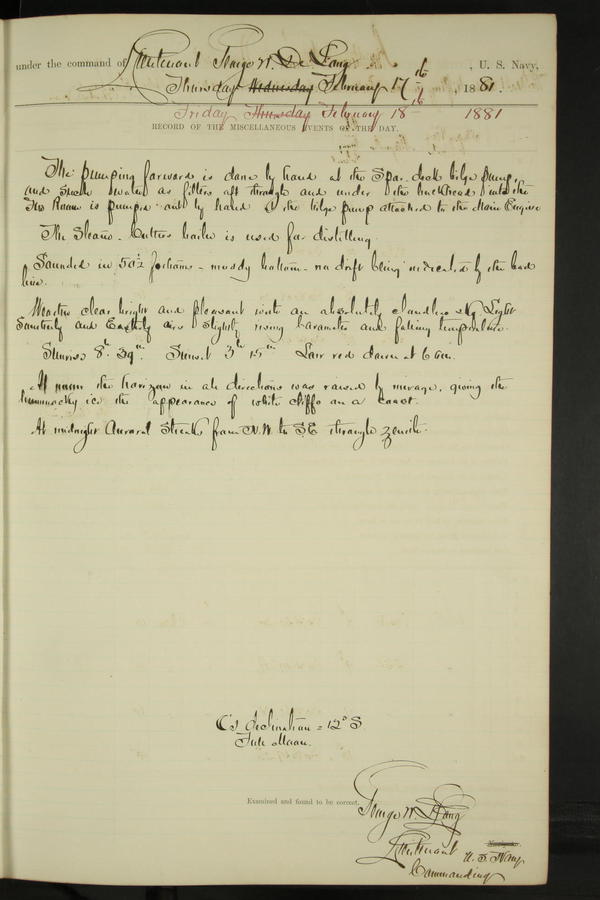 under the command of Lieutenant George W. De Long, U. S. Navy,
Thursday Wednesday February 17 16, 1881.
Friday Thursday February 18 1881
RECORD OF THE MISCELLANEOUS EVENTS OF THE DAY.
The pumping forward is done by hand at the Spar deck bilge pump,
and such water as filters aft through and under the bulkhead into the
Fire Room is pumped out by hand by the bilge pump attached to the Main Engine
The Steam-Cutters boiler is used for distilling.
Sounded in 50½ fathoms - muddy bottom - no drift being indicated by the lead
line.
Weather clear bright and pleasant with an absolutely cloudless sky. Light
Southerly and Easterly airs slightly rising barometer and falling temperature.
Sunrise 8h 39m. Sunset 3h 15m Low red dawn at 6 a.m.
At noon the horizon in all directions was raised by mirage, giving the
hummocky ice the appearance of white cliffs on a coast.
At midnight Auroral Streaks from N.W. to SE through zenith.
C's declination = 12° S
Full Moon.
Examined and found to be correct.
George W. De Long
Lieutenant U. S. Navy
Commanding